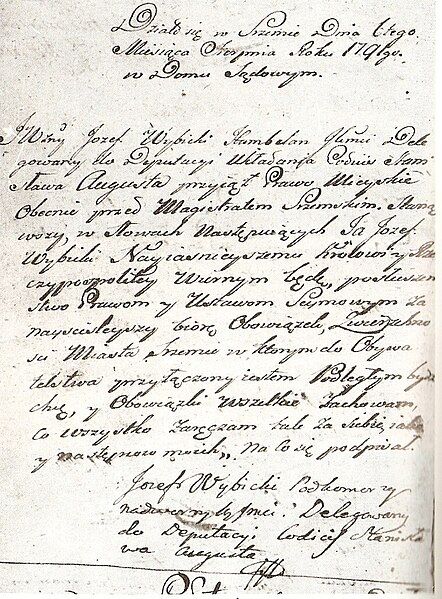 Działo się w Szremie Dnia 6tego
Miesiąca Sierpnia Roku 1791go.
w Domu Sądowym.
JWżny Jozef Wybicki Szambelan JKmci Dele
gowany do Deputacyi Układania Codicis Stani
sława Augusta przyiął Prawo Mieyskie
Obecnie przed Magistratem Szremskim, Staną
wszy, w Słowach Następuiących Ja Jozef
Wybicki Nayiasnieyszemu Krolowi y Rze
czypospolitey Wiernym będę, posłuszen
stwo Prawom y Ustawom Seymowym za
nayscisleyszy biorę Obowiązek, Zwierzchno
sci Miasta Szremu w ktorym do Obywa
telstwa przyłączony iestem Podległym bydź
chcę, y Obowiązki wszelkie Zachowam,
Co wszystko Zaręczam tak za siebie, iako
y następcow moich„ Na co się podpisał.
Jozef Wybicki Podkomorzy
nadworny JKmci Delegowany
do Deputacyi Codicis Stanisła
wa Augusta